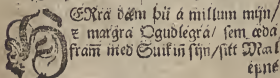 GERra dæm þu a millum mijn/
⁊ margra Ogudlegra/ sem æda
fram med Suik in syn/ sitt Maal
efne